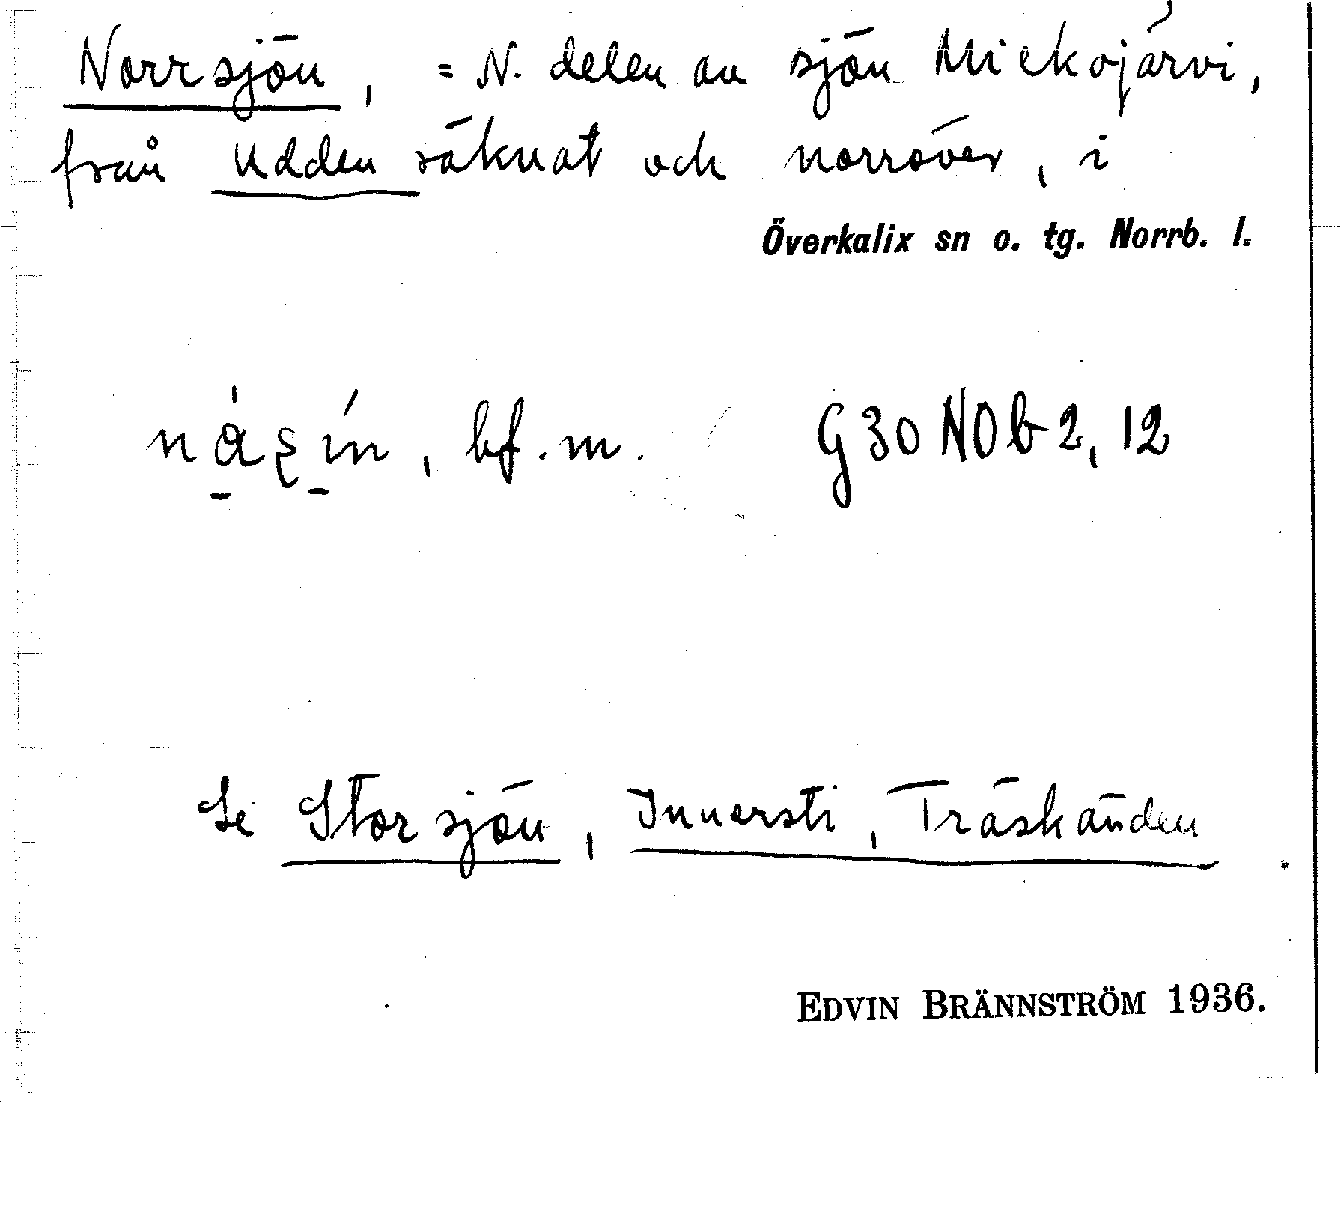 Norrsjön, = N. delen av sjön Miekojärvi,
från Udden räknat och norröver, i
Överkalix sn o. tg. Norrb. l.
bf. m. G30 NOb 2, 12
Se Storsjön, Innersti, Träskänden.
EDVIN BRÄNNSTRÖM 1936.